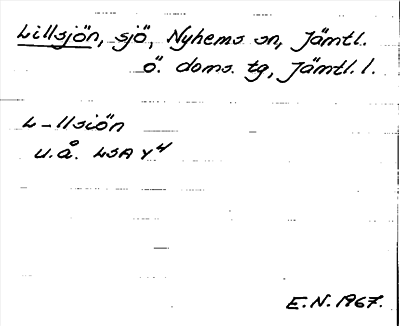 Lillsjön, sjö, Nyhems sn, Jämtl.
ö. doms. tg, Jämtl. l.
L-llsiön
u.å. LSA Y4
E.N. 1967.